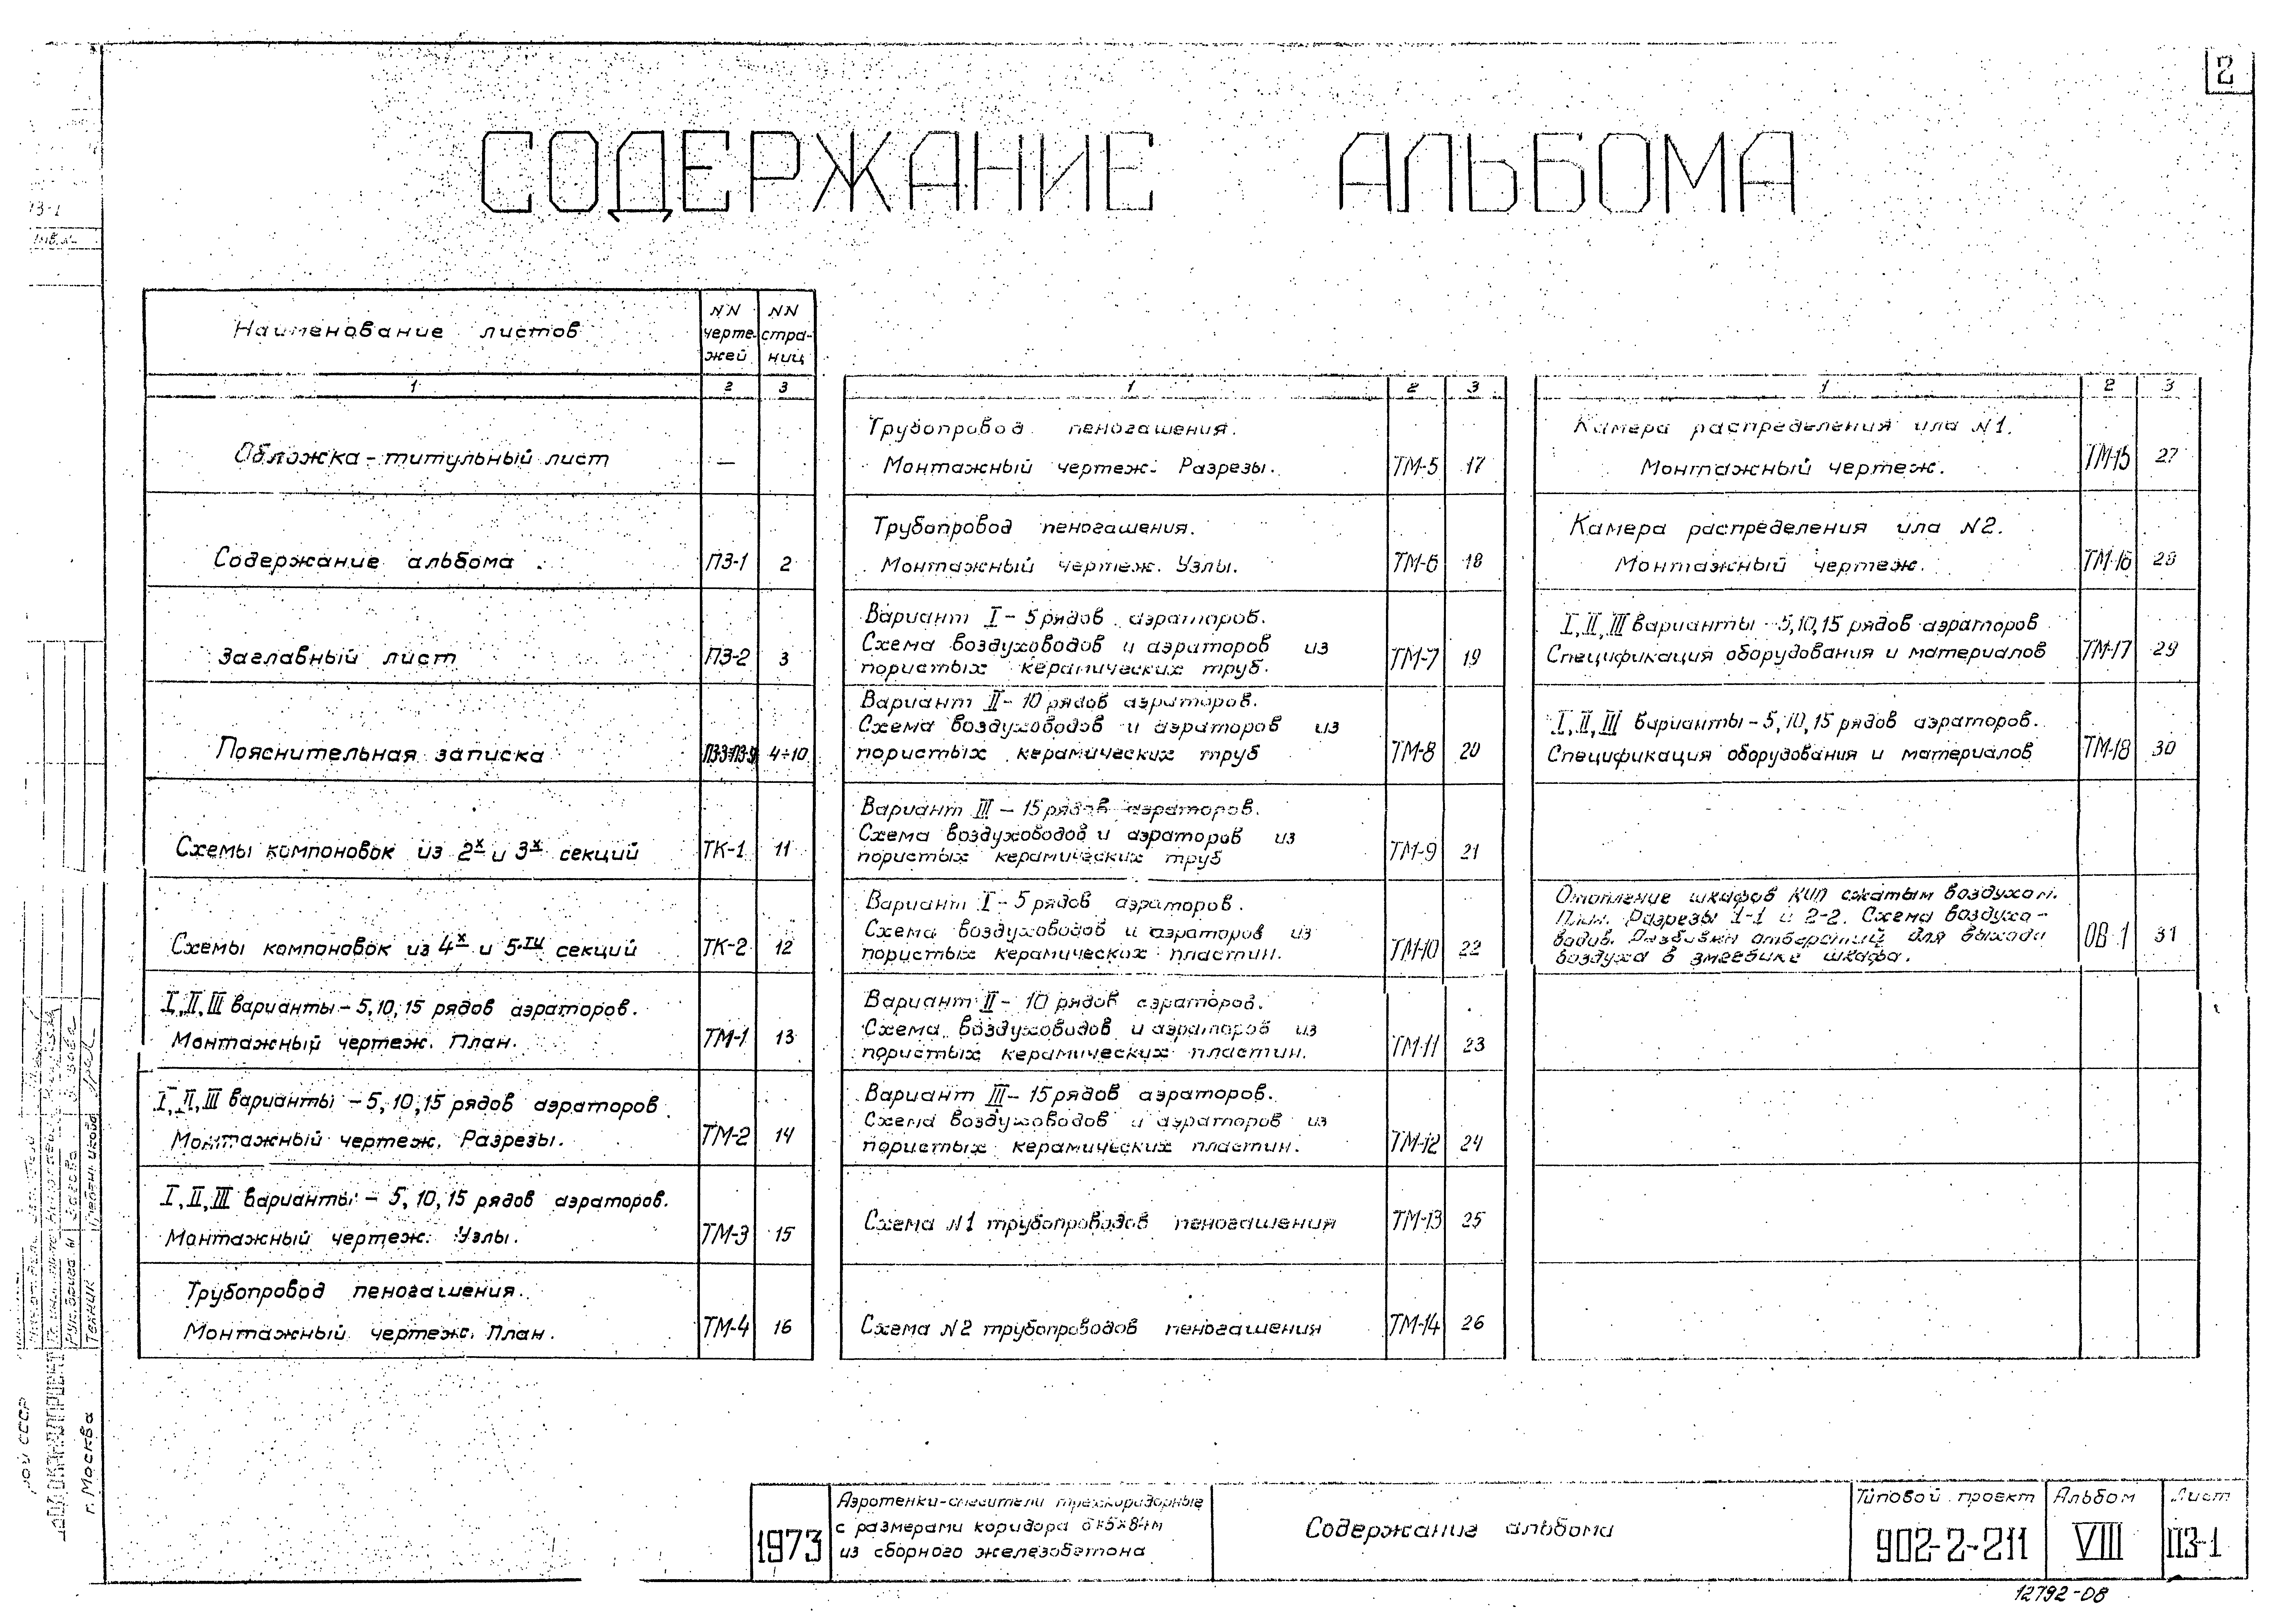 2
СОДЕРЖАНИЕ АЛЬБОМА
Наименование листов
NN чертежей
NN страниц
1 2 3
Обложка - титульный лист —
Содержание альбома ПЗ-1 2
Заглавный лист ПЗ-2 3
Пояснительная записка ПЗ-3÷ПЗ-9 4÷10
Схемы компоновок из 2х и 3х секций ТК-1 11
Схемы компоновок из 4х и 5ти секций ТК-2 12
I, II, III варианты - 5, 10, 15 рядов аэраторов.
Монтажный чертеж. План. ТМ-1 13
I, II, III варианты - 5, 10, 15 рядов аэраторов.
Монтажный чертеж. Разрезы. ТМ-2 14
I, II, III варианты - 5, 10, 15 рядов аэраторов.
Монтажный чертеж. Узлы. ТМ-3 15
Трубопровод пеногашения.
Монтажный чертеж. План. ТМ-4 16
1 2 3
Трубопровод пеногашения.
Монтажный чертеж. Разрезы. ТМ-5 17
Трубопровод пеногашения.
Монтажный чертеж. Узлы. ТМ-6 18
Вариант I - 5 рядов аэраторов.
Схема воздуховодов и аэраторов из
пористых керамических труб. ТМ-7 19
Вариант II - 10 рядов аэраторов.
Схема воздуховодов и аэраторов из
пористых керамических труб ТМ-8 20
Вариант III - 15 рядов аэраторов.
Схема воздуховодов и аэраторов из
пористых керамических труб ТМ-9 21
Вариант I - 5 рядов аэраторов.
Схема воздуховодов и аэраторов из
пористых керамических пластин. ТМ-10 22
Вариант II - 10 рядов аэраторов.
Схема воздуховодов и аэраторов из
пористых керамических пластин. ТМ-11 23
Вариант III - 15 рядов аэраторов.
Схема воздуховодов и аэраторов из
пористых керамических пластин. ТМ-12 24
Схема N1 трубопроводов пеногашения ТМ-13 25
Схема N2 трубопроводов пеногашения ТМ-14 26
1 2 3
Камера распределения ила N1.
Монтажный чертеж. ТМ-15 27
Камера распределения ила N2.
Монтажный чертеж. ТМ-16 28
I, II, III варианты - 5, 10, 15 рядов аэраторов
Спецификация оборудования и материалов ТМ-17 29
I, II, III варианты - 5, 10, 15 рядов аэраторов.
Спецификация оборудования и материалов ТМ-18 30
Отопление шкафов КИП сжатым воздухом.
План. Разрезы 1-1 и 2-2. Схема воздухо-
водов. Разбивки отверстий для выхода
воздуха в змеевике шкафа. ОВ-1 31
1973
Аэротенки-смесители трехкоридорные
с размерами коридора 6×5×84м
из сборного железобетона
Содержание альбома
Типовой проект
902-2-211
Альбом
VIII
Лист
ПЗ-1
12792-08
Рук. бригады
Техник
г. Москва